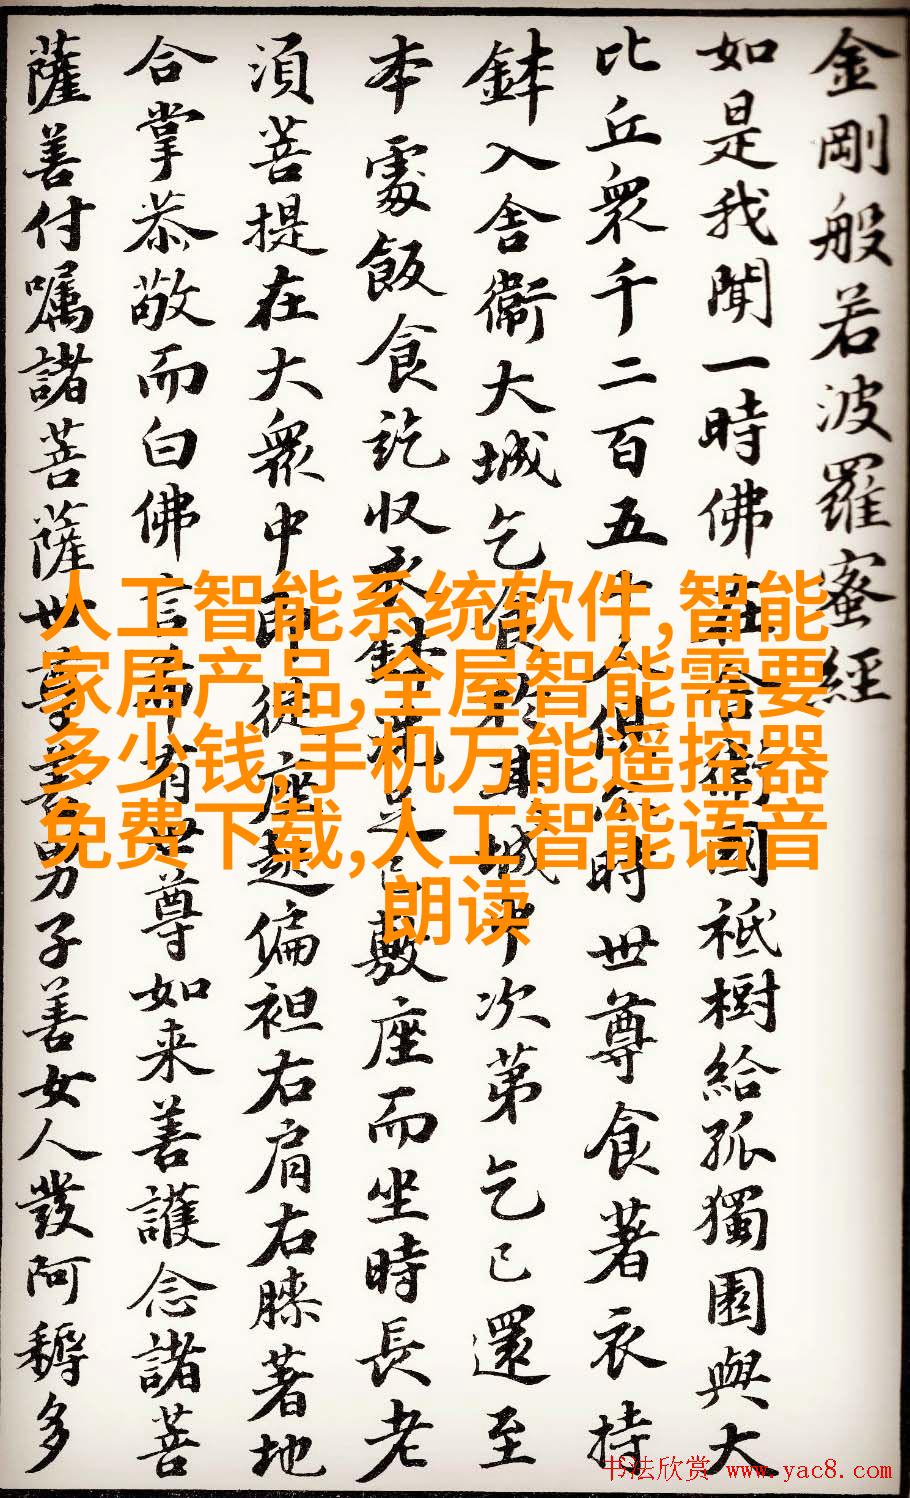 金剛般若波羅蜜經
如是我聞一時佛在舍衛國祇樹給孤獨園與大
比丘衆千二百五十人俱尒時世尊食著衣持
鉢入舍衛大城乞食於其城中次第乞已還至
本處飯食訖收衣鉢洗足已敷座而坐時長老
須菩提在大衆中即從座起偏袒右肩右膝著地
合掌恭敬而白佛言希有世尊如来善護念諸菩
薩善付嘱諸菩薩世尊善男子善女人發阿耨多
人工智能系统软件,智能
家居产品,全屋智能需要
多少钱,手机万能遥控器
免费下载,人工智能语音
朗读
书法欣赏 www.yac8.com